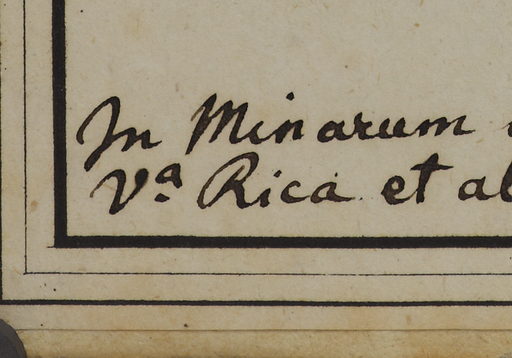 In Minarum
Vª Rica et al